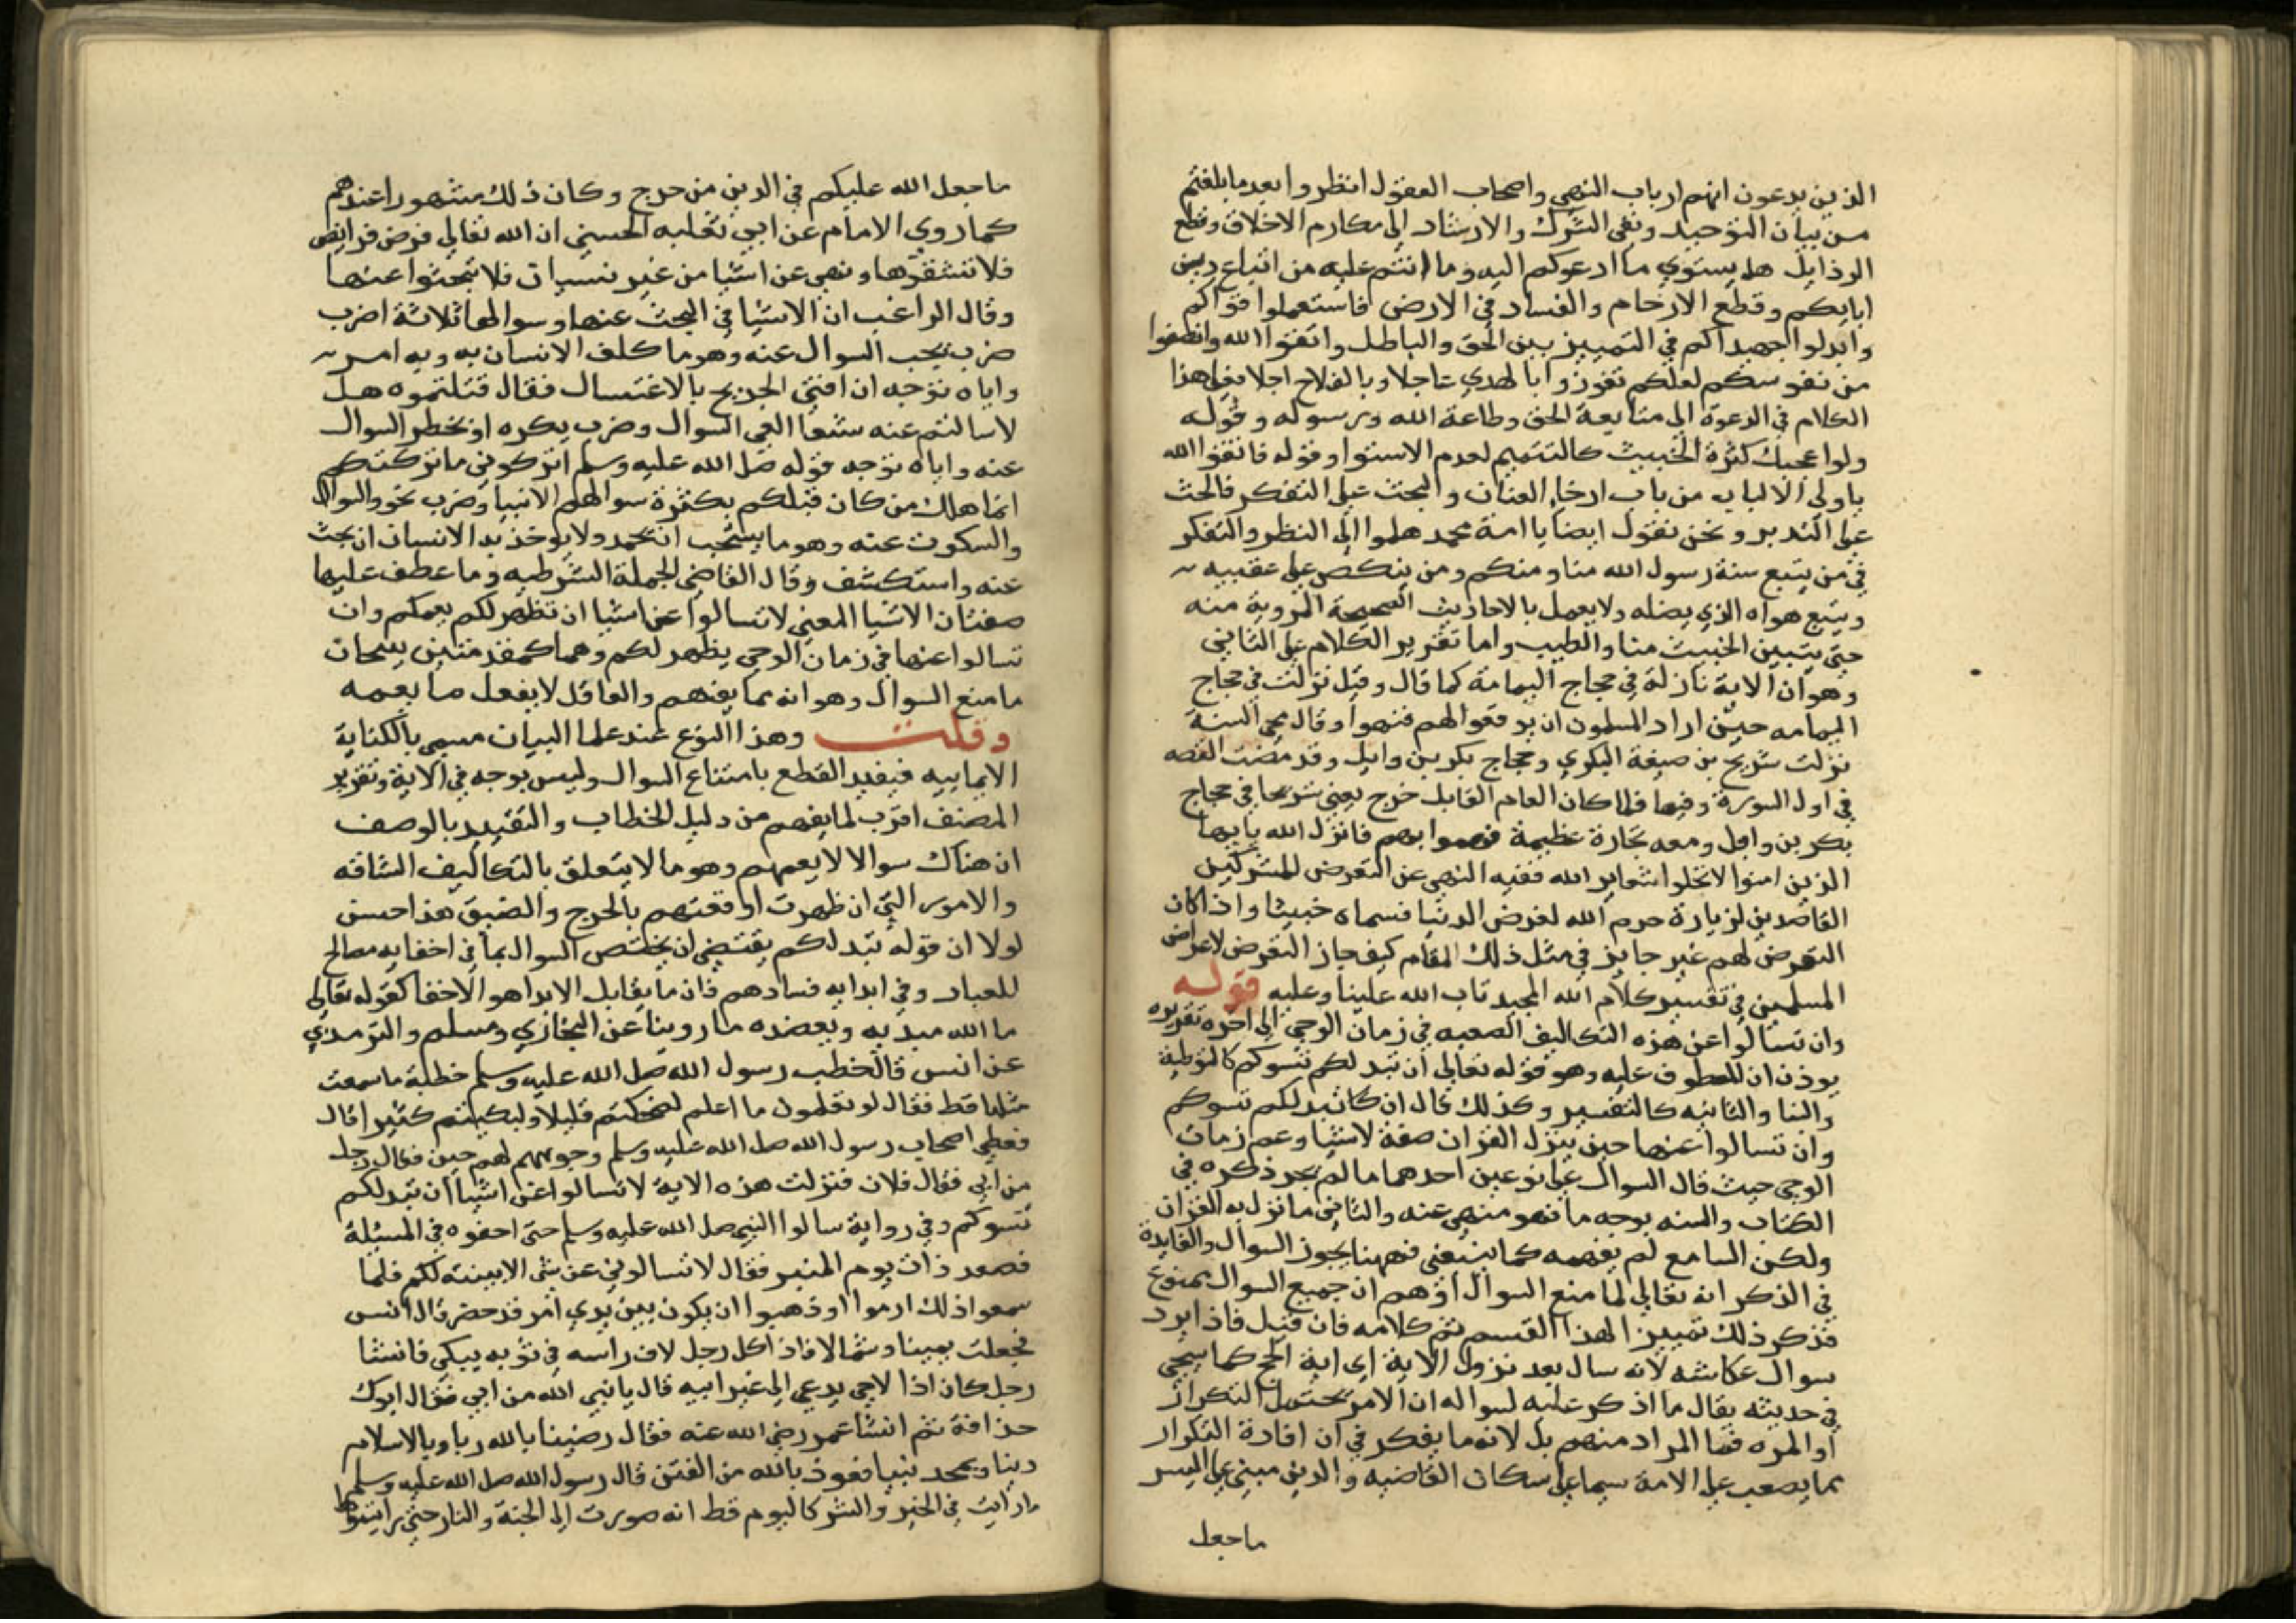 الذين يدعون انهم ارباب النهي واصحاب العقول انظروا بعد ما بلغتم
من بيان التوحيد ونفي الشرك والارشاد الي مكارم الاخلاق وقطع
الرذايل هل يستوي ما ادعوكم اليه وما انتم عليه من اتباع دين
ابايكم وقطع الارحام والفساد في الارض فاستعملوا قواكم
وابذلوا جهداكم في التمييز بين الحق والباطل واتقوا الله وانصفوا
من نفوسكم لعلكم تفوزوا بالهدي عاجلا وبالفلاح اجلا بقي هذا
الكلام في الدعوة الي متابعة الحق وطاعة الله ورسوله وقوله
ولو اعجبك كثرة الخبيث كالتتميم لعدم الاستوا وقوله فاتقوا الله
ياولي الالباب من باب ارخا العنان والبحث علي التفكر فالحث
علي التدبر ونحن نقول ايضا يا امة محمد هلموا الي النظر والتفكر
في من يتبع سنة رسول الله منا ومنكم ومن ينكص علي عقبيه
ويتبع هواه الذي يضله ولا يعمل بالاحاديث الصحيحة المروية منه
حتي يتبين الخبيث منا والطيب واما تقرير الكلام علي الثاني
وهو ان الاية نازلة في حجاج اليمامة كما قال وقيل نزلت في حجاج
اليمامه حين اراد المسلمون ان يوقعوا لهم فنهوا وقال محي السنة
نزلت شريح بن صبيعة البكري وحجاج بكر بن وايل وقد مضت القصه
في اول السورة وفيها فلما كان العام القابل خرج يعني شريحا في حجاج
بكر بن وايل ومعه تجارة عظيمة فهموا بهم فانزل الله يايها
الذين امنوا لا تحلوا شعاير الله ففيه النهي عن التعرض للمشركين
القاصدين لزيارة حرم الله لغرض الدنيا فسماه خبيثا واذا كان
التعرض لهم غير جايز في مثل ذلك المقام كيف جاز التعرض لاعراض
المسلمين في تفسير كلام الله المجيد تاب الله علينا وعليه قوله
وان تسالوا عن هذه التكاليف الصعبه في زمان الوحي الي اخره تقريره
يوذن ان المعطوف عليه وهو قوله تعالي ان تبد لكم تسوكم كالتوطية
والبنا والثانيه كالتفسير وكذلك قال ان كا تبد لكم تسوكم
وان تسالوا عنها حين ينزل القران صفة لاشيا وعم زمان
الوحي حيث قال السوال علي نوعين احدهما ما لم يجر ذكره في
الكتاب والسنه بوجه ما فهو منهي عنه والثاني ما نزل به القران
ولكن السامع لم يفهمه كما ينبغي فههنا يجوز السوال والفايدة
في الذكر انه تعالي لما منع السوال اوهم ان جميع السوال ممنوع
فذكر ذلك تمييزا لهذا القسم تم كلامه فان قيل فاذا يرد
سوال عكاشه لانه سال بعد نزول الاية اي اية الحج كما سيجي
في حديثه يقال ما اذكر عليه لسواله ان الامر يحتمل التكرار
او المره فما المراد منهم بل لانه ما يفكر في ان افادة التكرار
مما يصعب علي الامة سيما علي سكان القاصيه والدين مبني علي اليسر
ماجعل
ماجعل الله عليكم في الدين من حرج وكان ذلك مشهورا عندهم
كما روي الامام عن ابي ثعلبه الحسني ان الله تعالي فرض فرايض
فلا تنتقوها ونهي عن اشيا من غير نسيان فلا تبحثوا عنها
وقال الراغب ان الاشيا في البحث عنها وسوالها ثلاثة اضرب
ضرب يجب السوال عنه وهو ما كلف الانسان به وبه امر
واياه توجه ان افتي الجريح بالاغتسال فقال قتلتموه هل
لاسالتم عنه شفا العي السوال وضرب يكره او يحظر السوال
عنه واياه توجه قوله صل الله عليه وسلم اتركوني ما تركتكم
انما هلك من كان قبلكم بكثرة سوالهم الانبيا وضرب نحو والسوال
والسكوت عنه وهو ما يستحب ان يحمد ولا يوخذ بد الانسان ان بحث
عنه واستكشف وقال القاضي الجملة الشرطيه وما عطف عليها
صفتان الاشيا المعني لا تسالوا عن اشيا ان تظهر لكم يعمكم وان
تسالوا عنها في زمان الوحي يظهر لكم وهما كمقدمتين ينتجان
ما منع السوال وهو انه مما يغمهم والعاقل لا يفعل ما يغمه
وقلت وهذا النوع عند علما البيان مسمي بالكناية
الايمايه فيفيد القطع بامتناع السوال وليس بوجه في الاية وتقرير
المصنف اقرب لما يفهم من دليل الخطاب والتقييد بالوصف
ان هناك سوالا لا يعمهم وهو ما لا يتعلق بالتكاليف الشاقه
والامور التي ان ظهرت اوقعتهم بالحرج والضيق هذا حسن
لولا ان قوله تبد لكم يقتضي ان يختص السوال بما في اخفايه مصالح
للعباد وفي ابدايه فسادهم فان ما يقابل الابدا هو الاخفا كقوله تعالي
ما الله مبديه ويعضده ما روينا عن البخاري ومسلم والترمذي
عن انس قال خطب رسول الله صل الله عليه وسلم خطبة ما سمعت
مثلها قط فقال لو تعلمون ما اعلم لضحكتم قليلا ولبكيتم كثيرا قال
فغطي اصحاب رسول الله صل الله عليه وسلم وجوههم لهم حنين فقال رجل
من ابي فقال فلان فنزلت هذه الاية لا تسالوا عن اشيا ان تبد لكم
تسوكم وفي رواية سالوا النبي صل الله عليه وسلم حتي احفوه في المسئلة
فصعد ذات يوم المنبر فقال لا تسالوني عن شي الا بينته لكم فلما
سمعوا ذلك ارموا او ذهبوا ان يكون بين يدي امر قد حضر قال انس
فجعلت يمينا وشمالا فاذا كل رجل لاف راسه في ثوبه يبكي فانشا
رجل كان اذا لاحي يدعي الي غير ابيه قال يا نبي الله من ابي فقال ابوك
حذافة ثم انشا عمر رضي الله عنه فقال رضينا بالله ربا وبالاسلام
دينا وبمحمد نبيا نعوذ بالله من الفتن قال رسول الله صل الله عليه وسلم
ما رايت في الخير والشر كاليوم قط انه صورت الي الجنة والنار حتي رايتهما